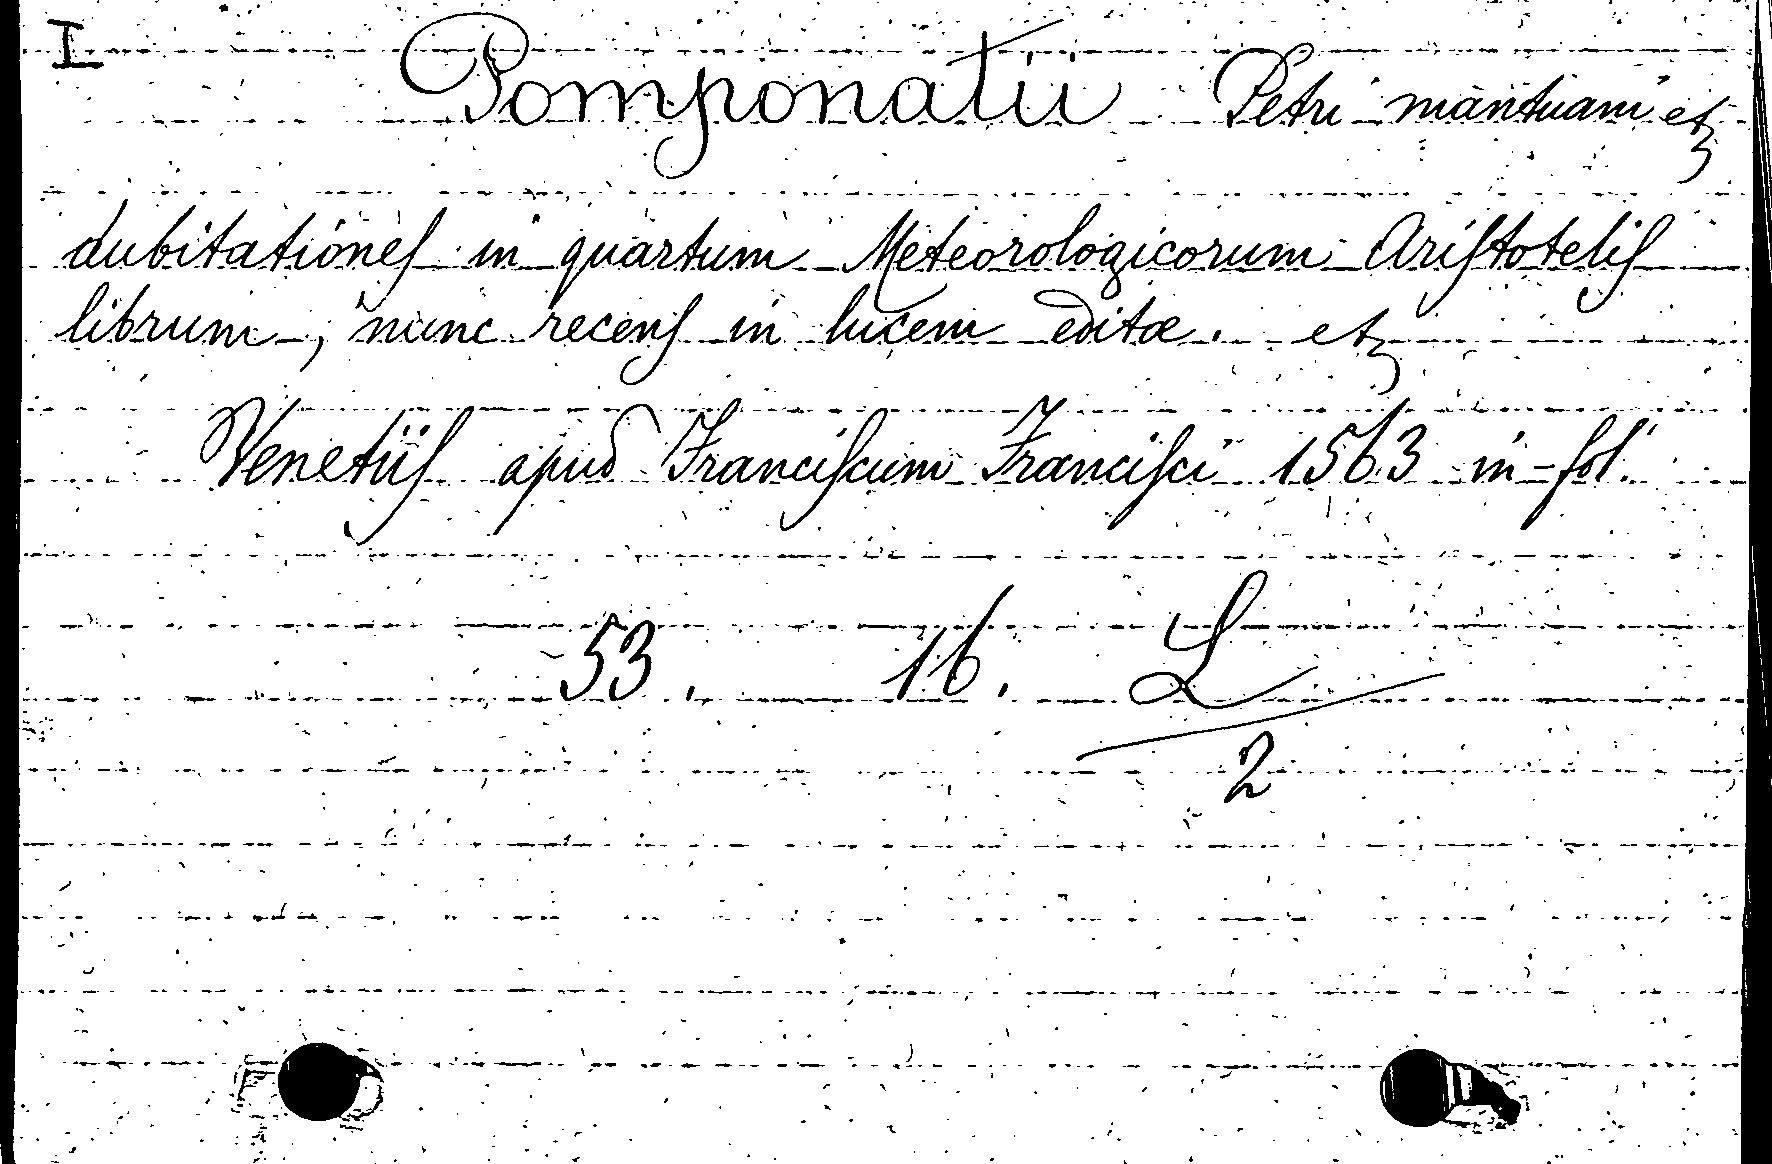 I
Pomponatii Petri mantuani etz
dubitationes in quartum Meteorologicorum Aristotelis
librum, nunc recens in lucem editæ. etz
Venetiis apud Franciscum Francisci 1563 in-fol.
53. 16. L
2